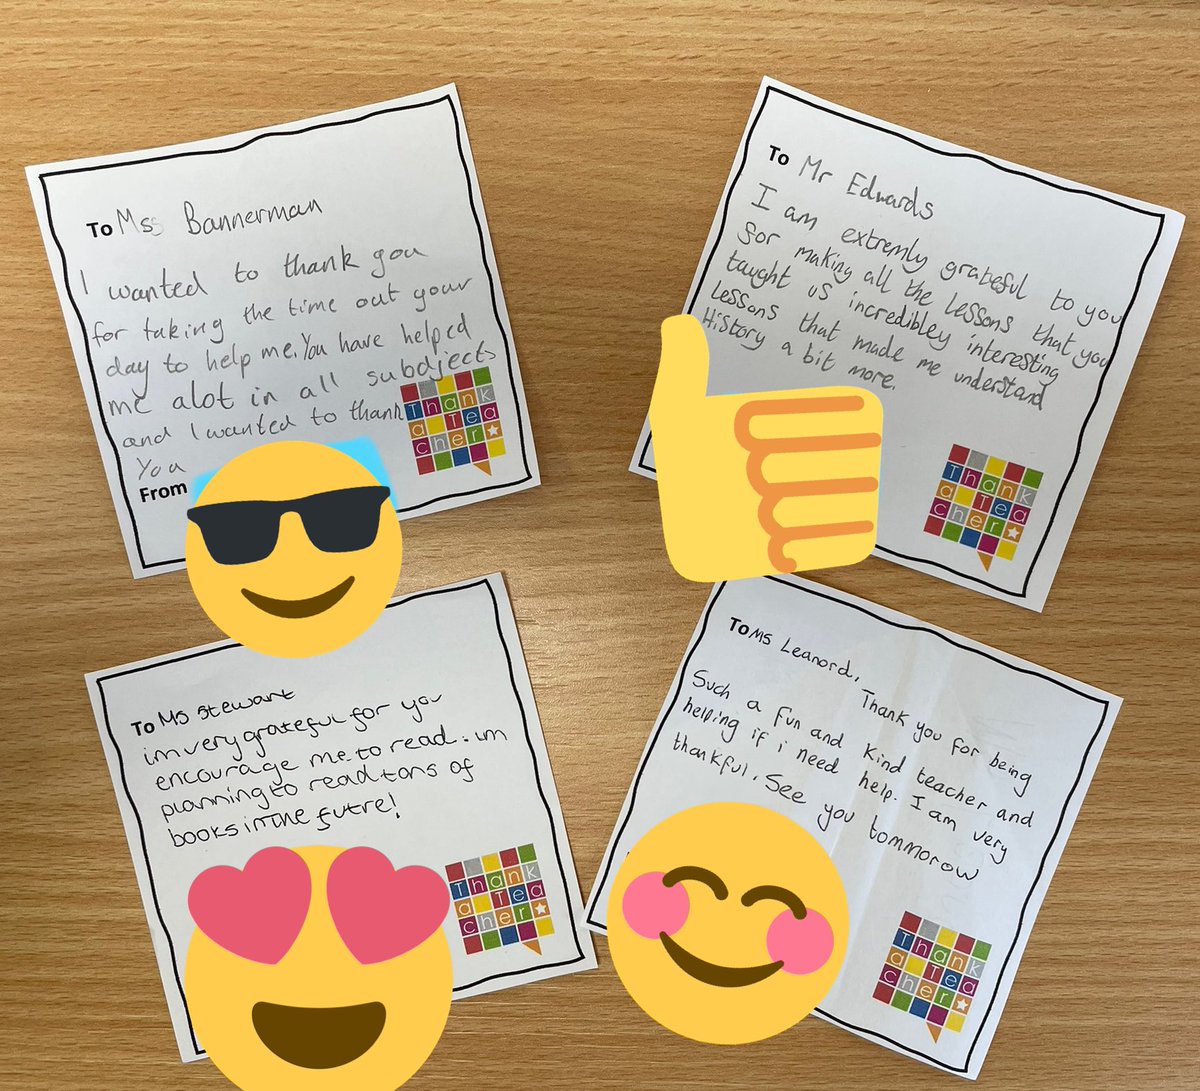 To Mss Bannerman
I wanted to thank you
for taking the time out your
day to help me. You have helped
me alot in all subdjects
and I wanted to thank
You
From
Thank
a Tea
cher
To Mr Edwards
I am extremly grateful to you
for making all the lessons that you
taught us incredibley interesting
lessons that made me understand
History a bit more.
Thank
a Tea
cher
To Ms Stewart
im very grateful for you
encourage me to read. im
planning to read tons of
books in the futre!
Thank
a Tea
cher
To Ms Leanord,
Thank you for being
Such a fun and kind teacher and
helping if i need help. I am very
thankful. See you tommorow
Thank
a Tea
cher